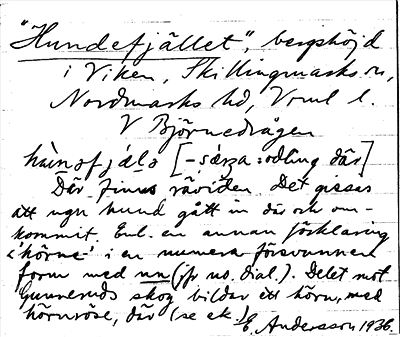 "Hundefjället", bergshöjd
i Viken, Skillingmarks sn,
Nordmarks hd, Vrml l.
V Björnedrågen
Där finns räviden. Det gissas
att ngn hund gått in där och om-
kommit. Enl. en annan förklaring
'hörne' i en numera försvunnen
form med nn (jfr no. dial.). Delet mot
Gunneruds skog bildar ett hörn, med
hörnröse, där (se ek.) E. Andersson 1936.